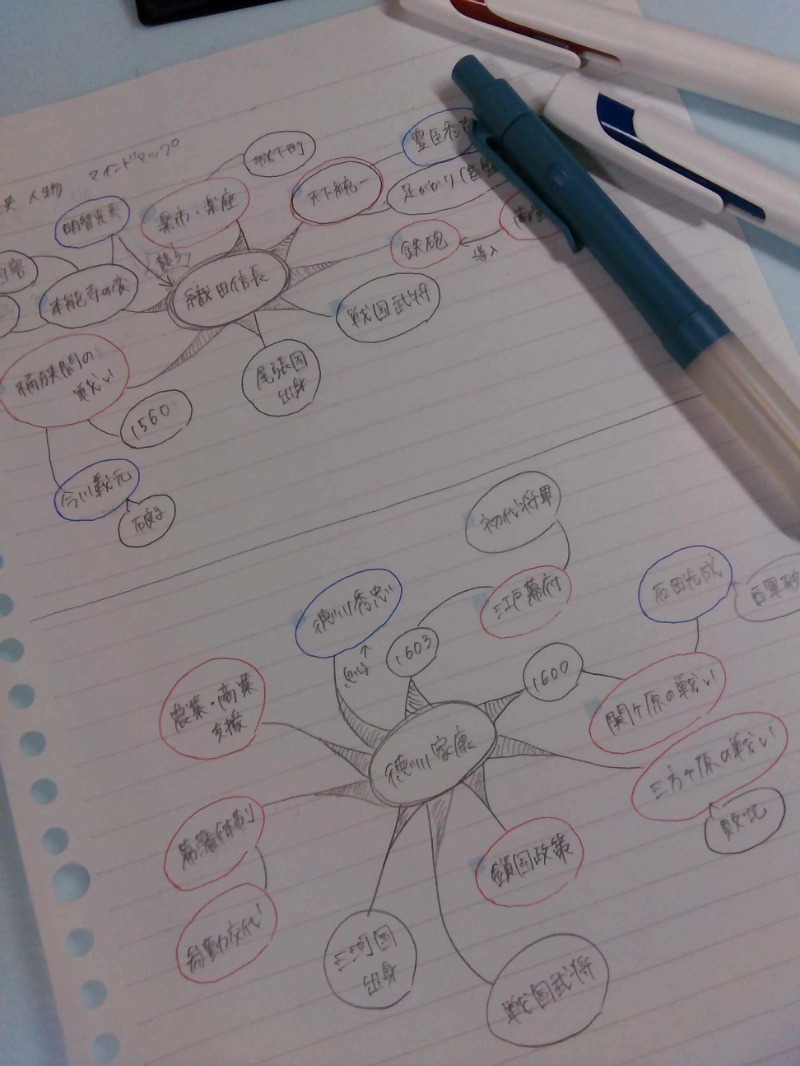 人物 マインドマップ
城下町
楽市・楽座
天下統一
豊臣秀
足がかり
明智光秀
本能寺の変
織田信長
鉄砲
導入
戦国武将
尾張国
出身
桶狭間の
戦い
1560
今川義元
初代将軍
江戸幕府
徳川秀忠
1603
1600
石田光成
関ヶ原の戦い
農業・商業
支援
徳川家康
三方ヶ原の戦い
敗北
幕藩体制
鎖国政策
参勤交代
三河国
出身
戦国武将